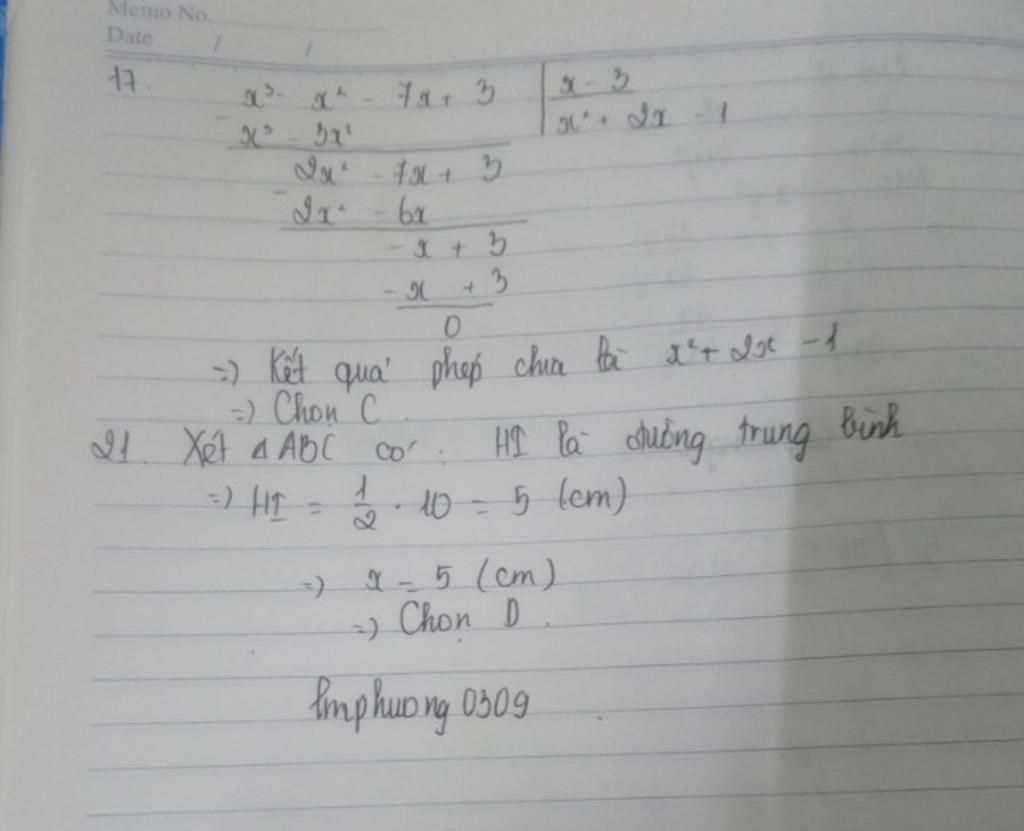 Memo No.
Date / /
17. x³ - x² - 7x + 3 | x - 3
- x³ - 3x² x² + 2x - 1
2x² - 7x + 3
- 2x² - 6x
- x + 3
- x + 3
0
=) Kết quả phép chia là x² + 2x - 1
=) Chọn C.
21. Xét △ABC có: HI là đường trung bình
=) HI = 1/2 . 10 = 5 (cm)
=) x = 5 (cm)
=) Chọn D.
lmphuong0309